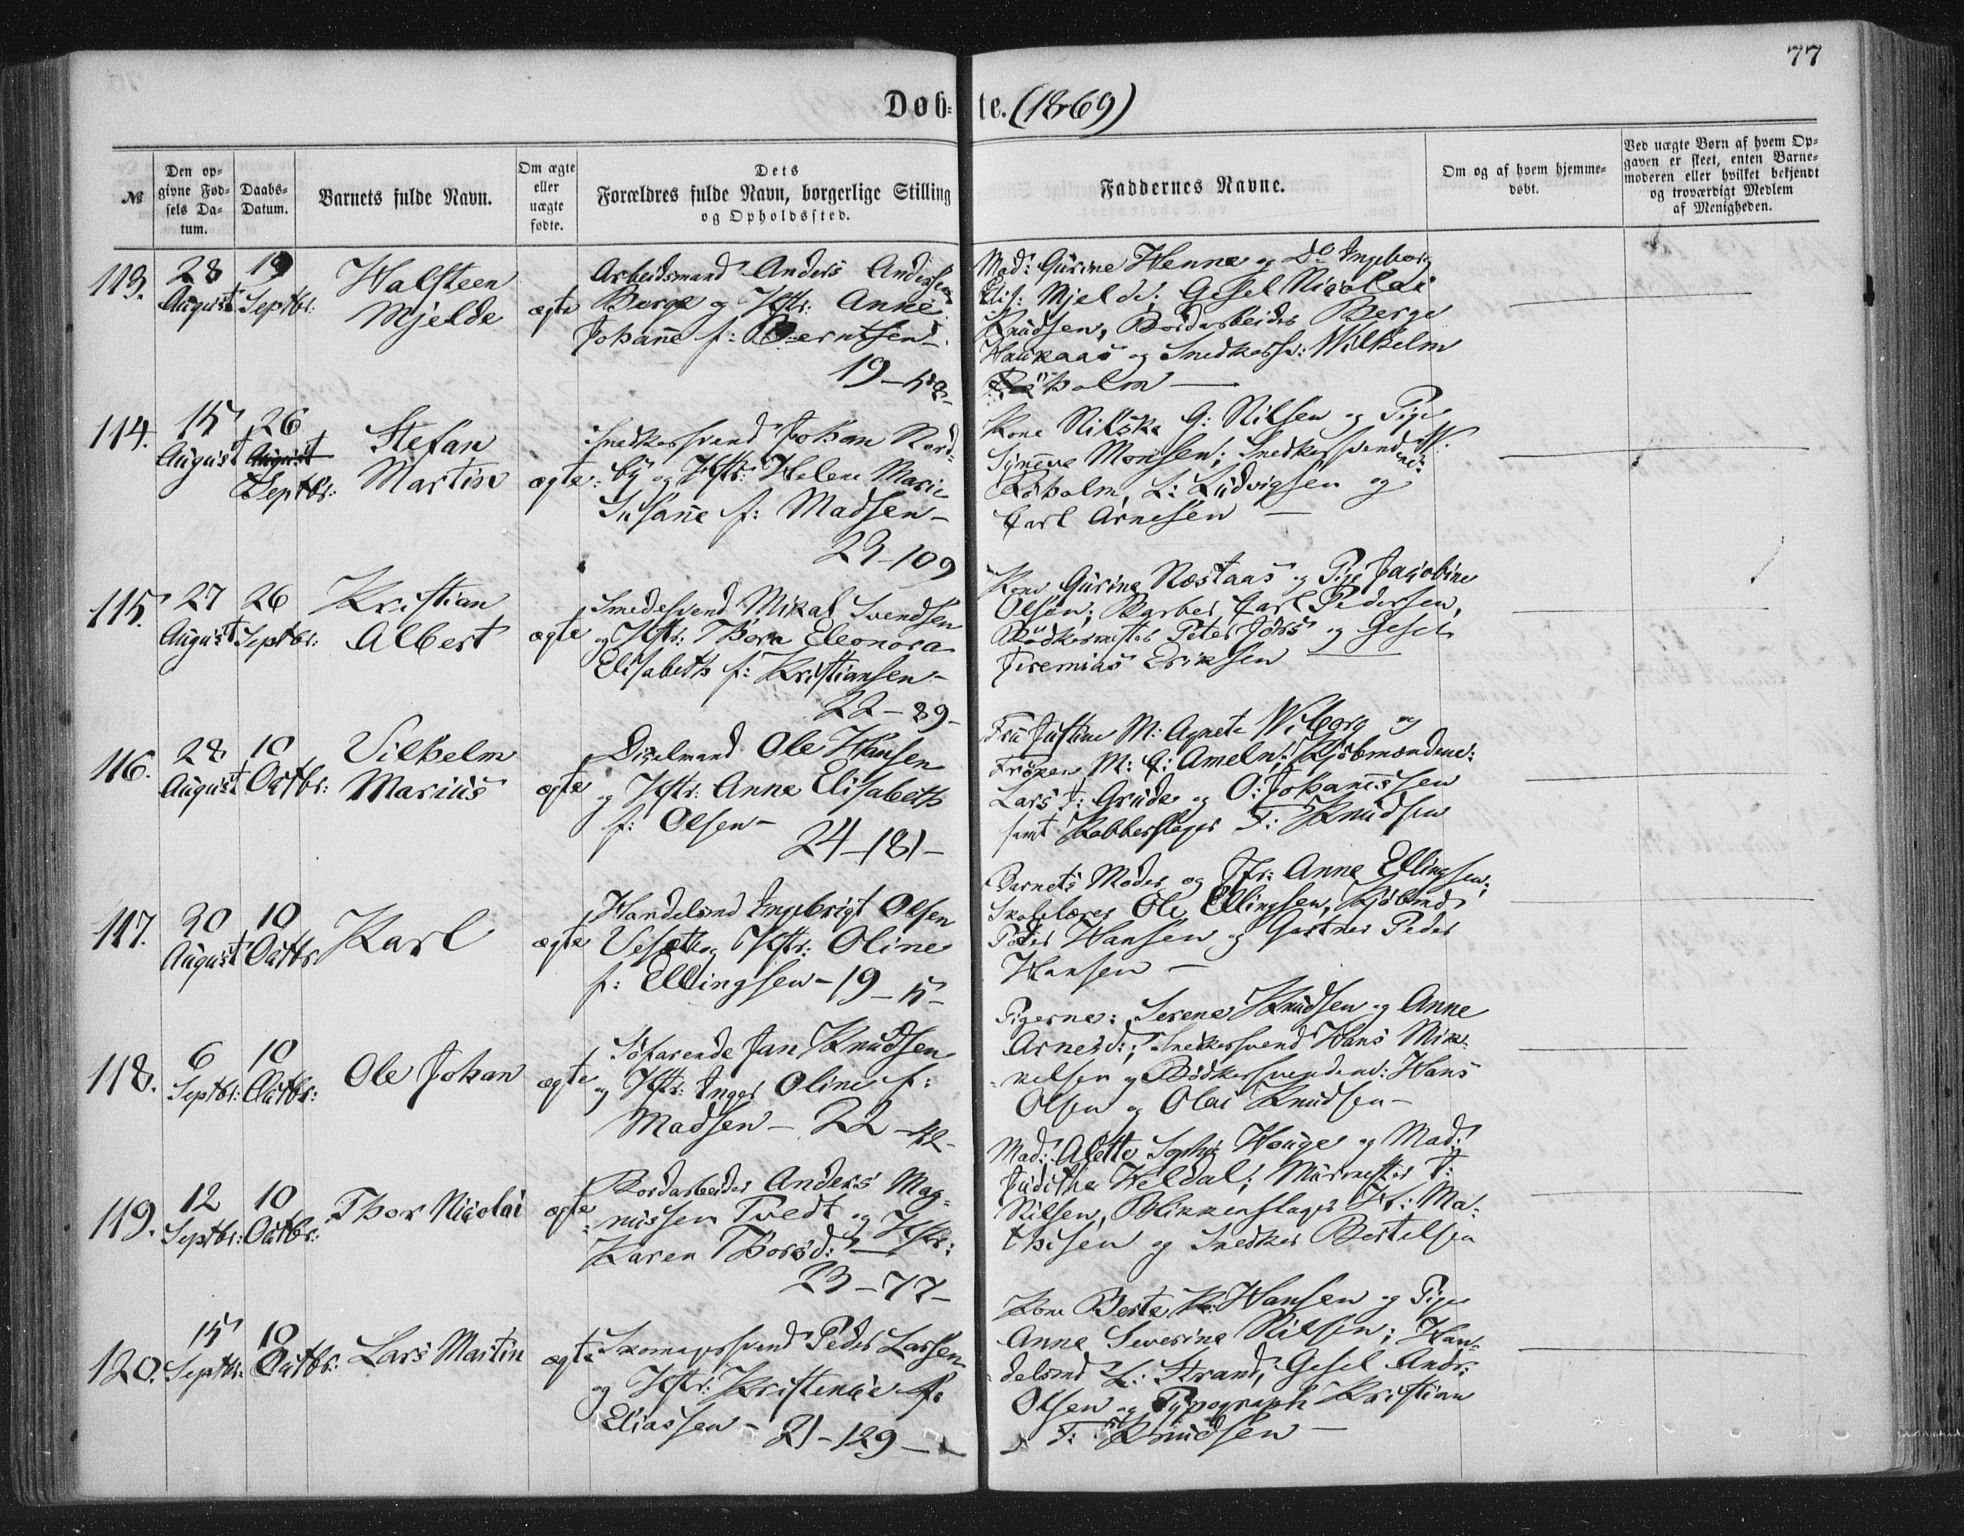 77
Døb-te. (1869)
№
Den op-
givne Fød-
sels Da-
tum.
Daabs-
Datum.
Barnets fulde Navn.
Om ægte
eller
uægte
fødte.
Dets
Forældres fulde Navn, borgerlige Stilling
og Opholdssted.
Faddernes Navne.
Om og af hvem hjemme-
døbt.
Ved uægte Børn af hvem Op-
gaven er skeet, enten Barne-
moderen eller hvilket bekjendt
og troværdigt Medlem
af Menigheden.
113.
28
August
19
Septbr:
Halsteen
Mjelde
ægte
Arbeidsmand Anders Anderssen
Berge og Hstr: Anne
Johan̄e f: Berntsen –
19 – 58 –
Mad: Gurine Henne og Do Ingeborg
Elis: Mjelde; Gesel Nicolai
Knudsen, Bordarbeider Berge
Haukaas og Snedkersv: Wilhelm
Röholm –
114.
15
August
26
August
Septbr:
Stefan
Martin
ægte
Snedkersvend Johan Nord-
by og Hstr: Helene Marie
Susan̄e f: Madsen –
23 – 109
Kone Nilska G: Nilsen og Pige
Syneva Monsen; Snedkersvendene: W.
Röholm, L: Ludvigsen og
Carl Arnesen –
115.
27
August
26
Septbr:
Kristian
Albert
ægte
Smedesvend Mikal Svendsen
og Hstr: Thora Eleonora
Elisabeth f: Kristiansen –
22 – 89 –
Kone Gurine Næstaas og Pige Jacobine
Olsen; Barber Carl Pedersen,
Bödkermester Peter Jörs og Gesel
Jeremias Eriksen
116.
28
August
10
Octbr:
Vilhelm
Marius
ægte
Dixelmand Ole Hansen
og Hstr: Anne Elisabeth
f: Olsen –
24 – 181 –
Fru Justine M: Agnete Wiborg og
Fröken M: C: Ameln; Kjöbmændene:
Lars T: Grude og O: Johan̄ssen
samt Kobberslager T: Knudsen
117.
30
August
10
Octbr
Karl
ægte
Handelsmd Ingebrigt Olsen
Vesætr og Hstr: Oline
f: Ellingsen – 19 – 15 –
Barnets Moder og Jfr: Anne Ellingsen;
Skolelærer Ole Ellingsen, Kjöbmd
Peder Hansen og Gartner Peder
Hansen –
118.
6
Septbr:
10
Octbr:
Ole Johan
ægte
Söfarende Jan Knudsen
og Hstr: Inger Oline f:
Madsen – 22 – 42 –
Pigerne: Serene Knudsen og Anne
Arnesd:; Snedkersvend Hans Mik-
kelsen og Bödkersvendene: Hans
Olsen og Olai Knudsen –
119.
12
Septbr:
10
Octbr:
Thor Nicolai
ægte
Bordarbeider Anders Mag-
nussen Tvedt og Hstr:
Karen Thorsd: –
23 – 77 –
Mad: Alette Sophie Houge og Mad:
Juditha Heldal; Murmester T:
Nilsen, Blikkenslager Fr: Ma-
thisen og Snedker Bertelsen
120.
15
Septbr:
10
Octbr:
Lars Martin
ægte
Skomagersvend Peder Larsen
og Hstr: Kristence f:
Eliassen – 21 – 129 –
Kone Berte K: Hansen og Pige
Anne Severine Nilsen; Han-
delsmd L: Strand, Gesel Andr:
Olsen og Typograph Kristian
F: Knudsen –